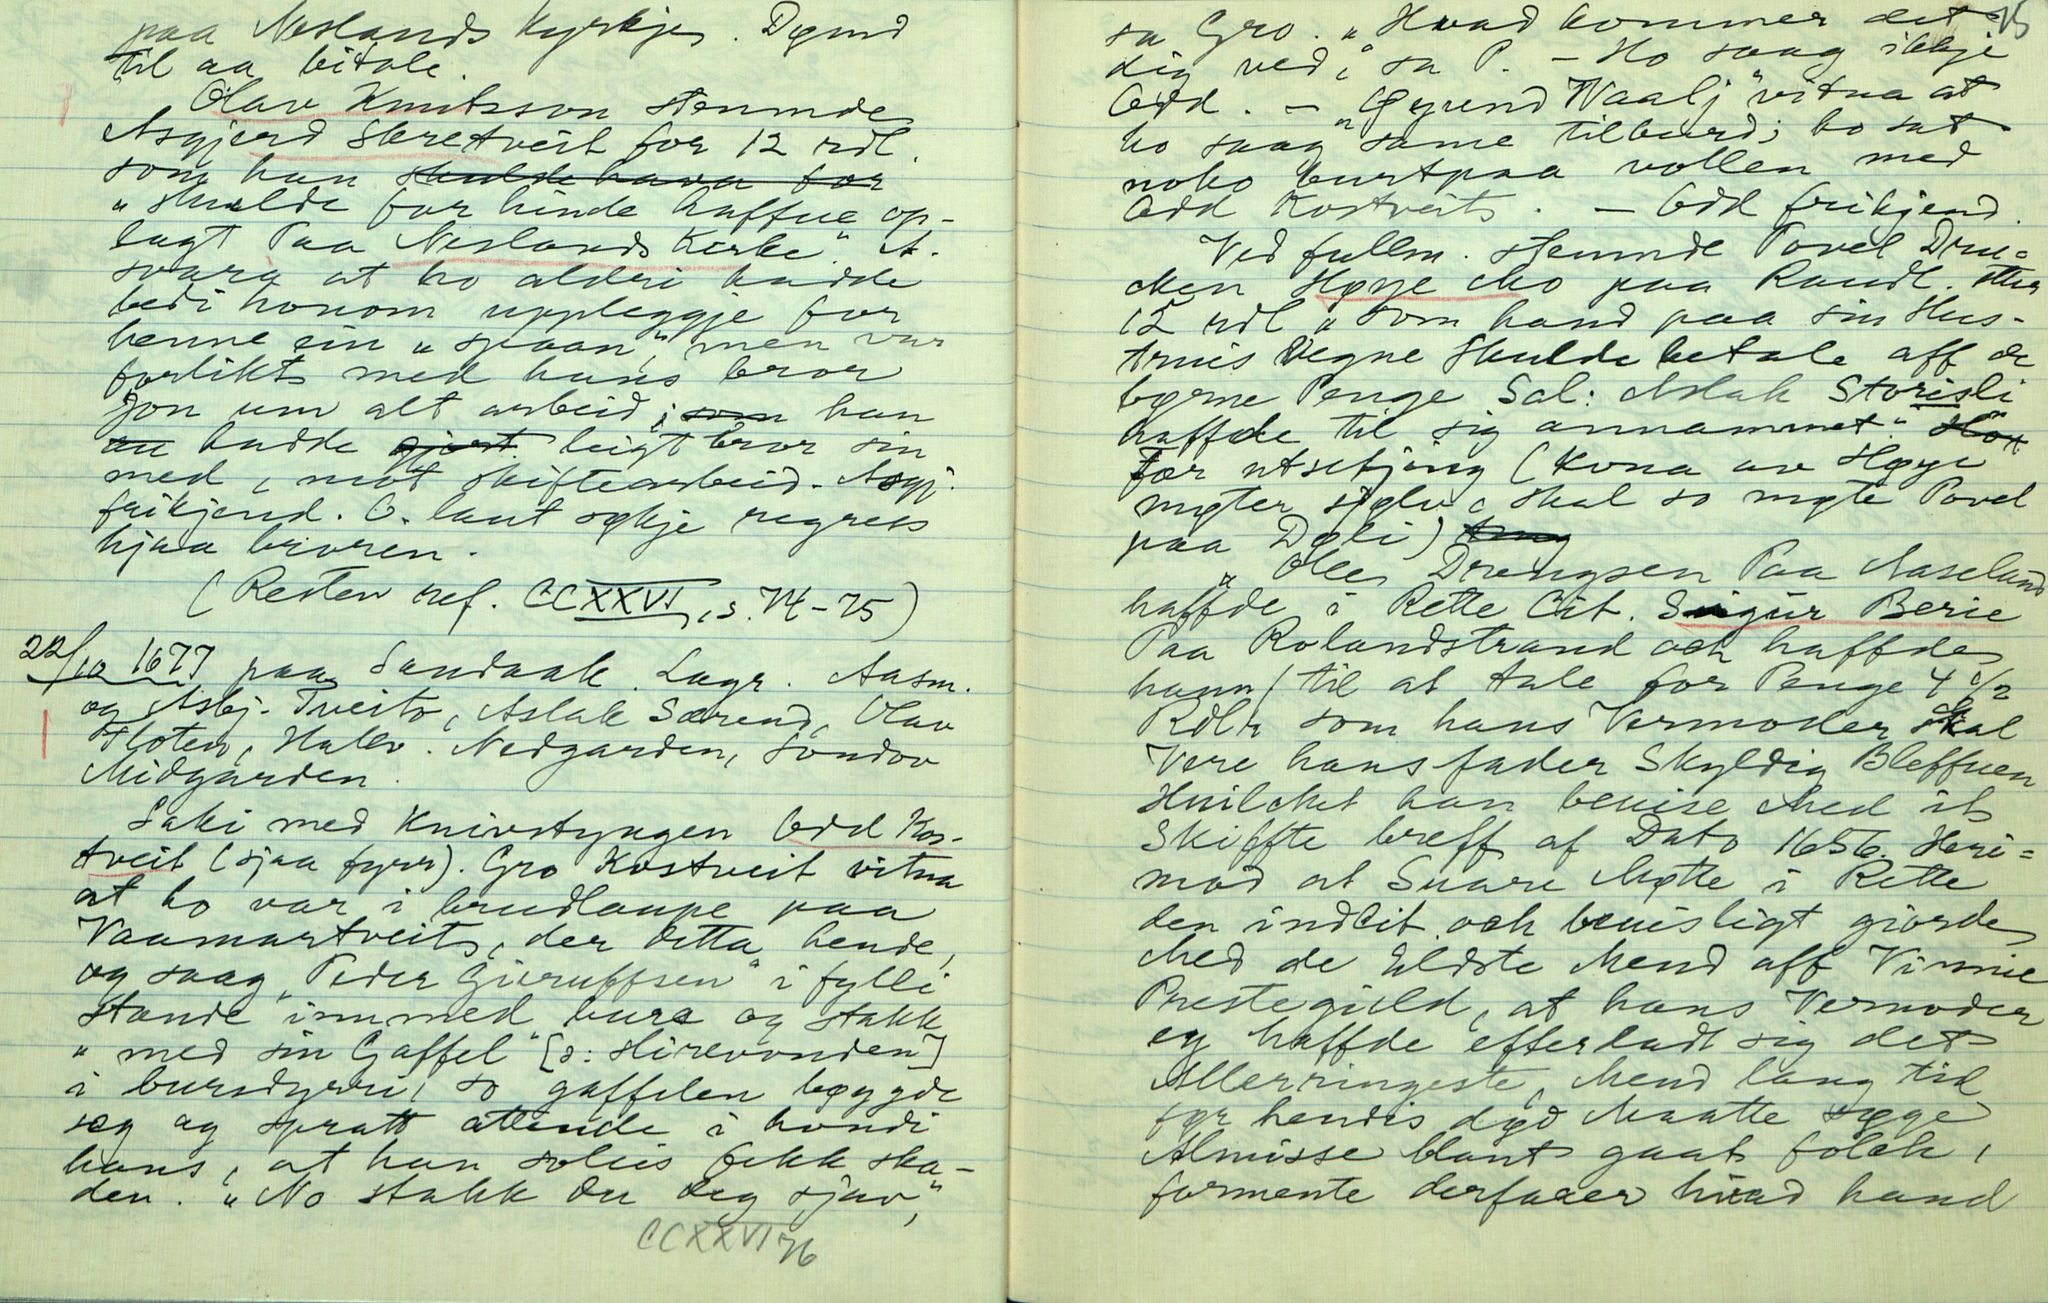 paa Neslands Kyrkje. Dømd
til aa bitale.
Olav Knutsson stemnde
Asgjerd Skretveit for 12 rdl.
som han skulde hava for
"skulde for hinde haffue op-
lagt Paa Neslands Kirke". A.
svara at ho aldri hadde
bedi honom uppleggje for
henne ein "spaan", men var
forlikt med hans bror
Jon um alt arbeid; som han
hadde gjort leigt bror sin
med, mot skiftearbeid. Asgj.
frikjend. O. laut søkje regress
hjaa broren.
(Resten ref. CCXXVI, s. 74-75)
22/10 1677 paa Sandaak. Lagr. Aasm.
og Asbj. Tveito, Aslak Særend, Olav
Floten, Hallv. Nedgarden, Sondov
Midgarden.
Saki med Knivstyngen Odd Kos-
tveit (sjaa fyrr). Gro Kostveit vitna
at ho var i brudlaupe paa
Vaamartveit, der detta hende,
og saag "Peder Gieruffsen" i fylli
stande innmed bure og stakk
"med sin Gaffel" [ɔ: Hirevonden]
i bursdyrri, so gaffelen bøygde
seg og spratt attende i hondi
hans, at han soleis fekk ska-
den. "No stakk du deg sjøv",
CCXXVI 76
75
sa Gro. "Hvad kommer det
dig ved", sa P. - Ho saag ikkje
Odd. - "Gyrend Waalj" vitna at
ho saag same tilburd; ho sat
noko burtpaa vollen med
Odd Kostveit. - Odd frikjend.
Ved fullm. stemnde Povel Dru-
cken Høye Mo paa Raudl. 
12 rdl "som hand paa sin Hus-
truis Vegne skulde betale aff de
børne Penge Sal: Aslak Storisli
haffde til sig annammet".
For utsetjing (Kona av Høye
møter sjølv, skal so møte Povel
paa Døli)
"Olle Drengsen Paa Naseland
haffde i Rette Cit. Sigur Berie
Paa Rolandstrand och haffde
hann til at tale for Penge 4 1/2
Rdlr som hans Vermoder skal
Vere hans fader Skyldig Bleffuen
Huilchet han beuise Med it
Skiffte breff af Dato 1656. Heri=
mod at Suare Møtte i Rette
den indCit. och beuisligt giorde
Med de Eldste Mend aff Vinnie
Prestegield, at hans Vermoder
ey haffde efterladt sig det
Allerringeste, Mend lang tid
før hendis død Maatte søge
Almisse blant gaat folck,
formente derfaaer hvad hand